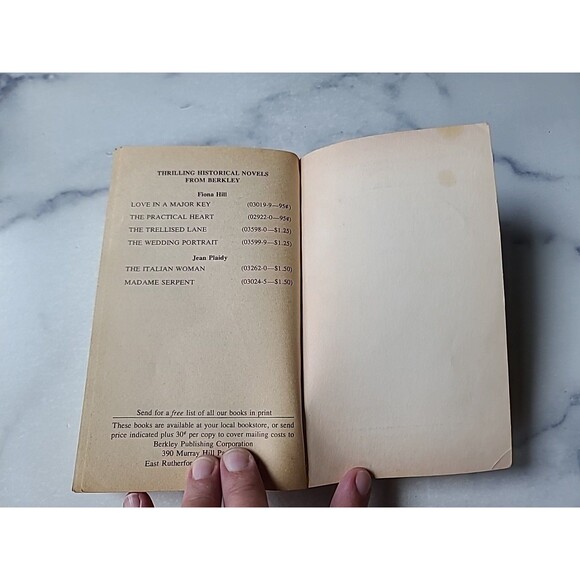 THRILLING HISTORICAL NOVELS
FROM BERKLEY
Fiona Hill
LOVE IN A MAJOR KEY (03019-9—95¢)
THE PRACTICAL HEART (02922-0—95¢)
THE TRELLISED LANE (03598-0—$1.25)
THE WEDDING PORTRAIT (03599-9—$1.25)
Jean Plaidy
THE ITALIAN WOMAN (03262-0—$1.50)
MADAME SERPENT (03024-5—$1.50)
Send for a free list of all our books in print
These books are available at your local bookstore, or send
price indicated plus 30¢ per copy to cover mailing costs to
Berkley Publishing Corporation
390 Murray Hill
East